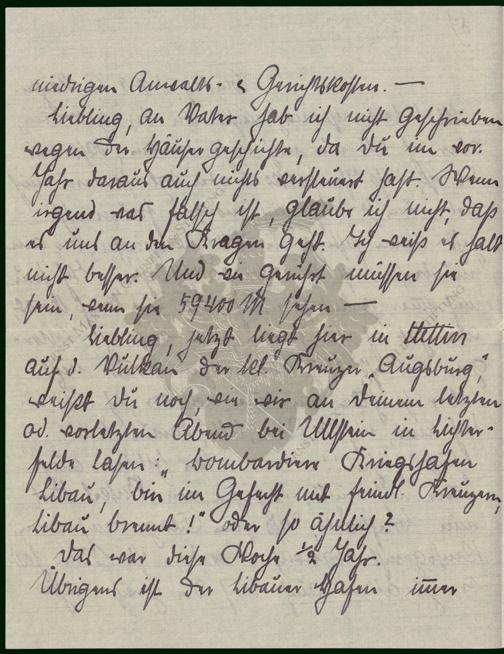 niedrigen Anwalts- & Gerichtskosten. —
Liebling, an Vater hab ich nicht geschrieben
wegen der Häusergeschichte, da Du im vor.
Jahr daraus auch nichts versteuert hast. Wenn
irgend was falsch ist, glaube ich nicht, daß
es uns an den Kragen geht. Ich weiß es halt
nicht besser. Und wie gerührt müssen sie
sein, wenn sie 59400 M sehen —
Liebling, jetzt liegt hier in Stettin
auf d. Vulkan der kl. Kreuzer „Augsburg",
weißt Du noch, wie wir an Deinem letzten
od. vorletzten Abend bei Ullstein in Lichter-
felde lasen: „bombardiere Kriegshafen
Libau, bin im Gefecht mit feindl. Kreuzern,
Libau brennt!" oder so ähnlich?
Das war diese Woche ½ Jahr.
Übrigens ist der Libauer Hafen immer